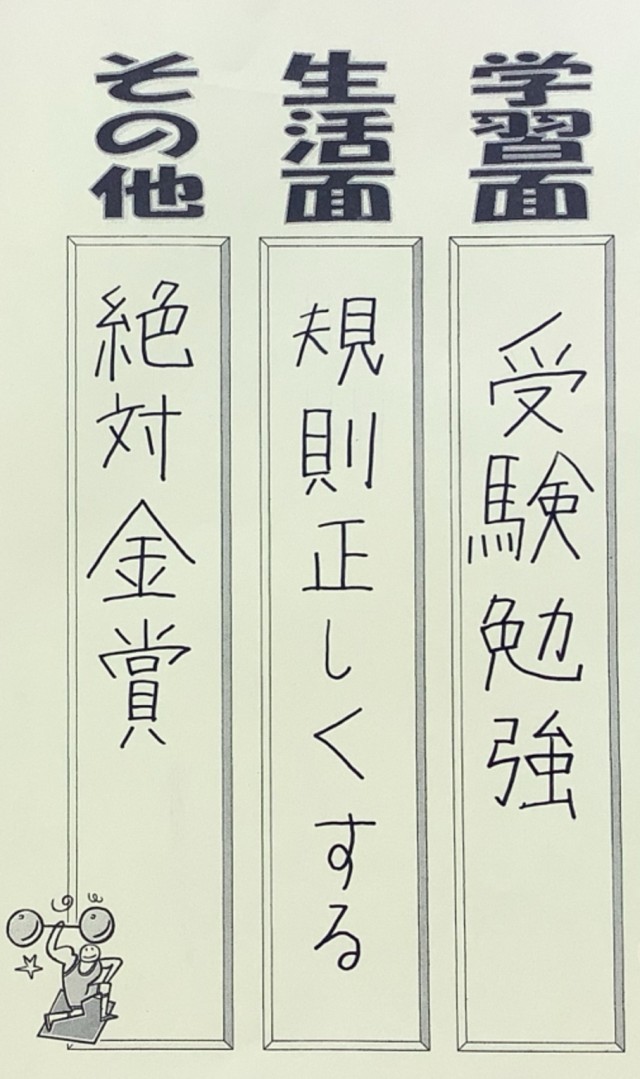 学習面
受験勉強
生活面
規則正しくする
その他
絶対金賞